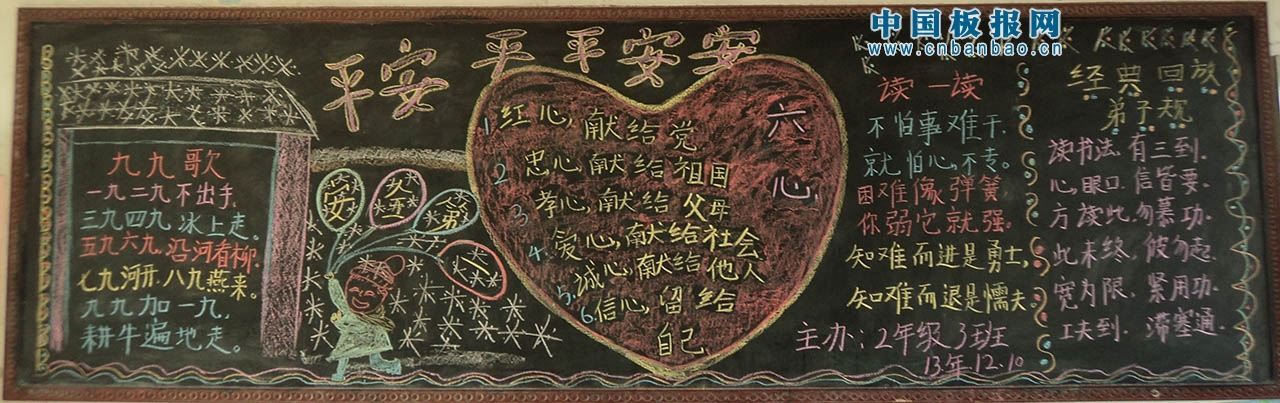 中国板报网
www.cnbanbao.cn
平安 平平安安
九九歌
一九二九不出手,
三九四九冰上走。
五九六九,沿河看柳
七九河开,八九燕来。
九九加一九,
耕牛遍地走。
六心
1 红心,献给党
2 忠心,献给祖国
3 孝心,献给父母
4. 爱心,献给社会
5. 诚心,献给他人
6 信心,留给
自己
读一读
不怕事难干,
就怕心不专。
困难像弹簧,
你弱它就强。
知难而进是勇士,
知难而退是懦夫
主办:2年级3班
13年.12.10
经典回放
弟子规
读书法.有三到.
心眼口.信皆要.
方读此.勿慕功.
此未终.彼勿起.
宽为限.紧用功.
工夫到.滞塞通.